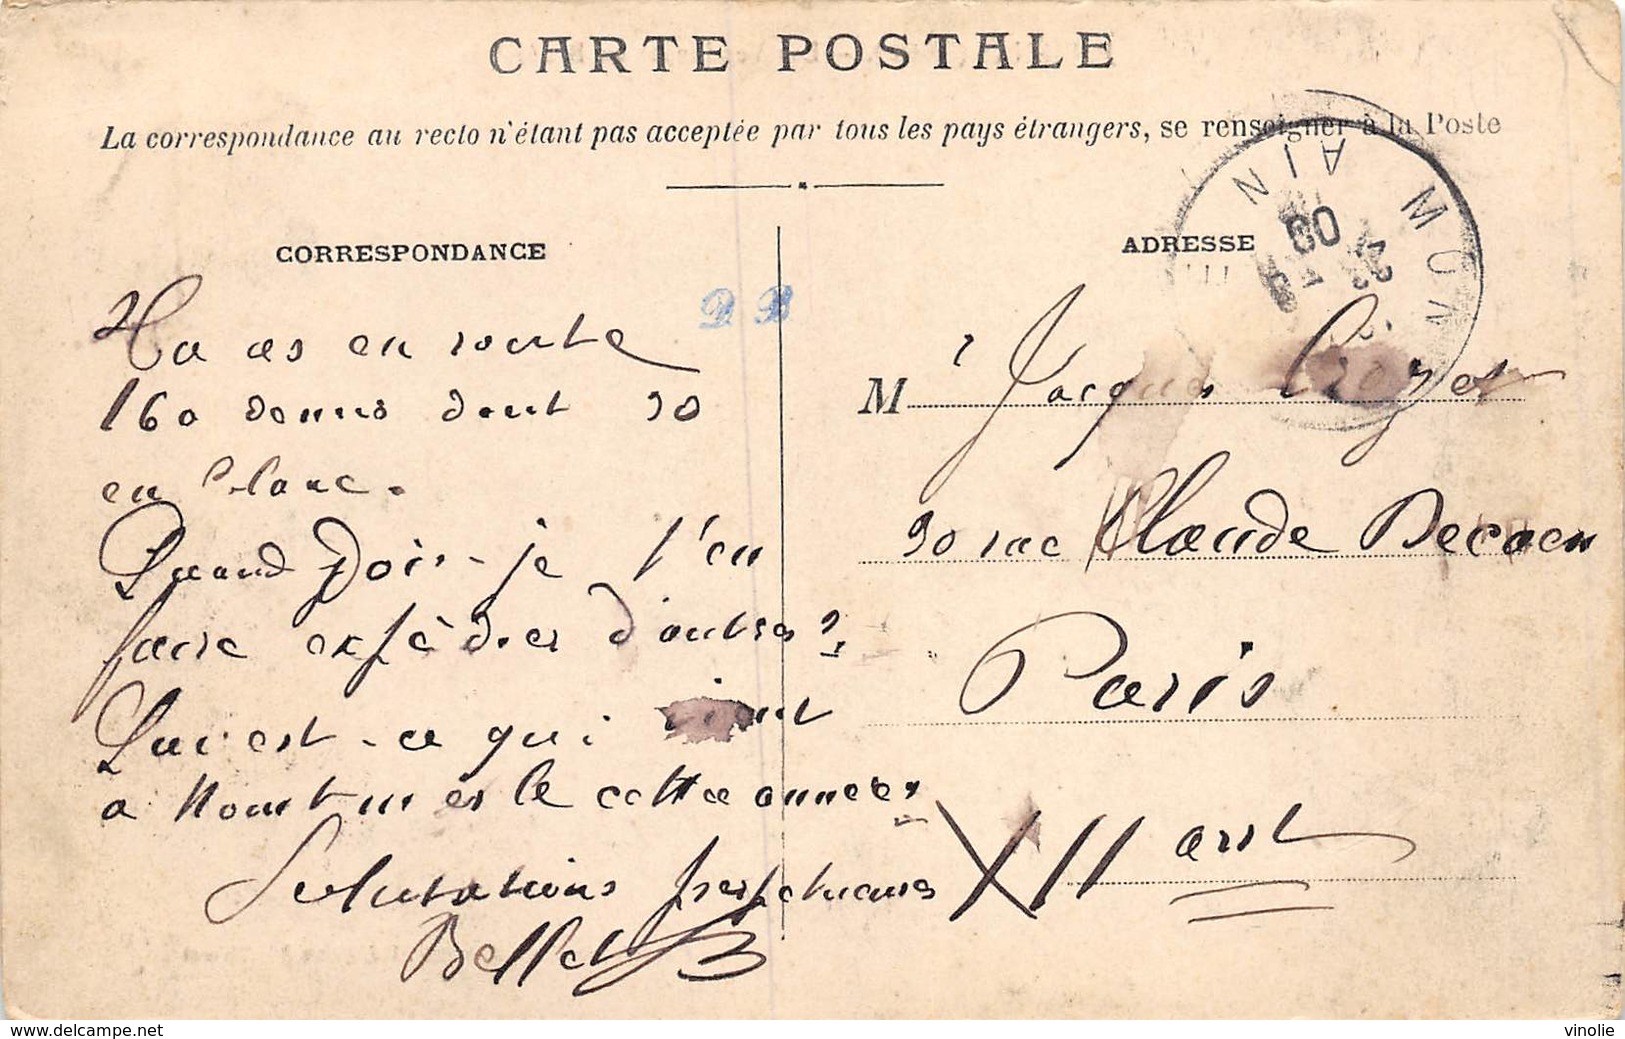 CARTE POSTALE
La correspondance au recto n'étant pas acceptée par tous les pays étrangers, se renseigner à la Poste
CORRESPONDANCE
en route
160 donnes dont 30
en blanc.
Quand dois-je t'en
faire expédier d'autres?
Qu'est-ce qui vient
a Montmerle cette année?
Salutations respectueuses
Bellet
ADRESSE
AIN
M Jacques Crozet
30 rue Claude Decaen
Paris
XII arrt
www.delcampe.net
vinolie